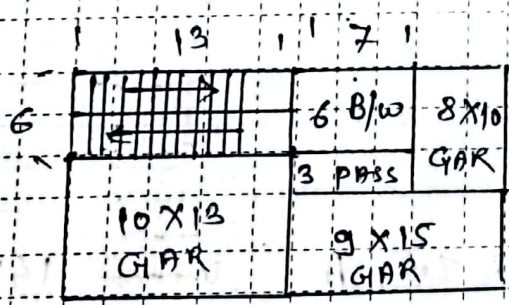 13 7
6
6 B/W
8X10
GAR
3 PASS
10 X 13
GAR
9 X 15
GAR